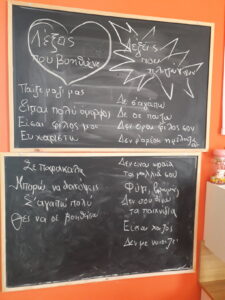 Λέξεις
που βοηθάνε
Παίζε μαζί μας
Είσαι πολύ όμορφος
Είσαι φίλος μου
Ευχαριστώ
Λέξεις
που
πληγώνουν
Δε σ'αγαπώ
Δε σε παίζω
Δεν είσαι φίλος μου
Δεν μ'αρέσει η μπλούζα
Σε παρακαλώ
Μπορώ να δοκιμάσω
Σ'αγαπώ πολύ
Θες να σε βοηθήσω
Δεν είναι ωραία
τα μαλλιά σου
Φύγε,
Δεν σου δίνω
τα παιχνίδια
Είσαι χαζός
Δεν με νοιάζει!